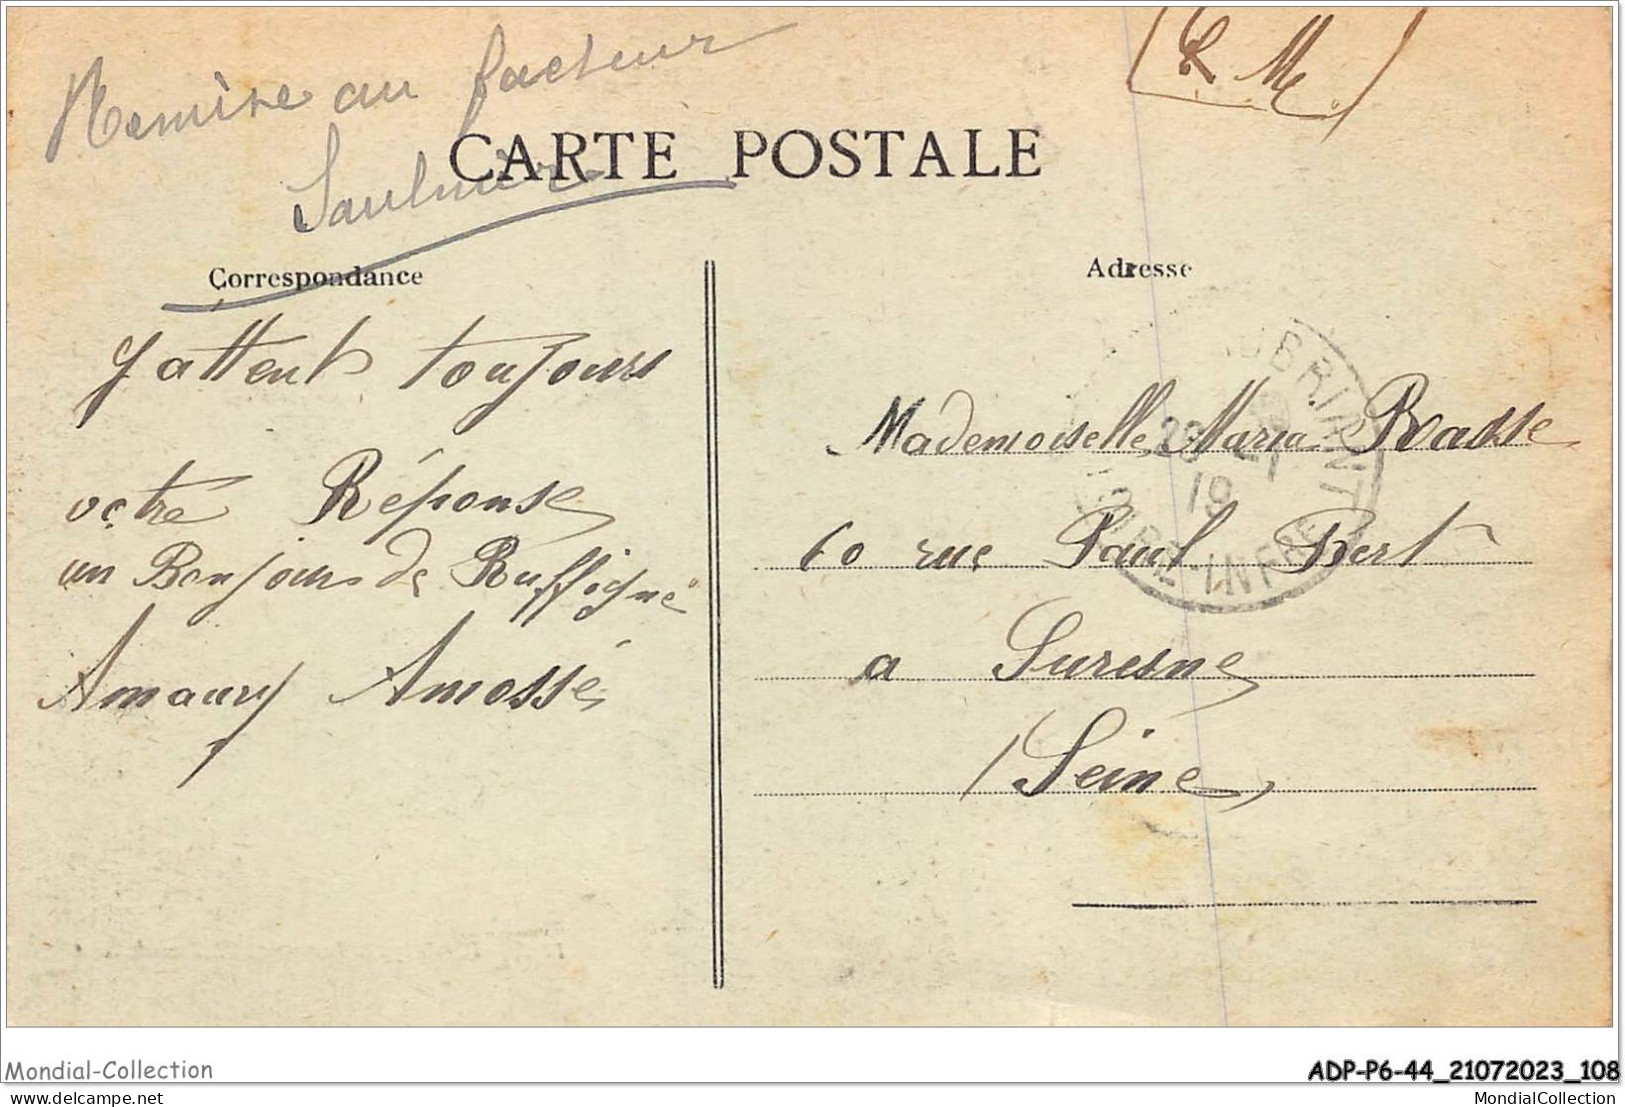 Remise au facteur
Saulnier
CARTE POSTALE
Correspondance
J'attent toujours
votre Réponse
un Bonjour de Ruffigné
Amaury Amossé
Adresse
Mademoiselle Maria
60 rue Paul Bert
a Suresne
(Seine)
BRIANT
INFRE
19
Mondial-Collection
ADP-P6-44_21072023_108
delcampe.net
MondialCollection